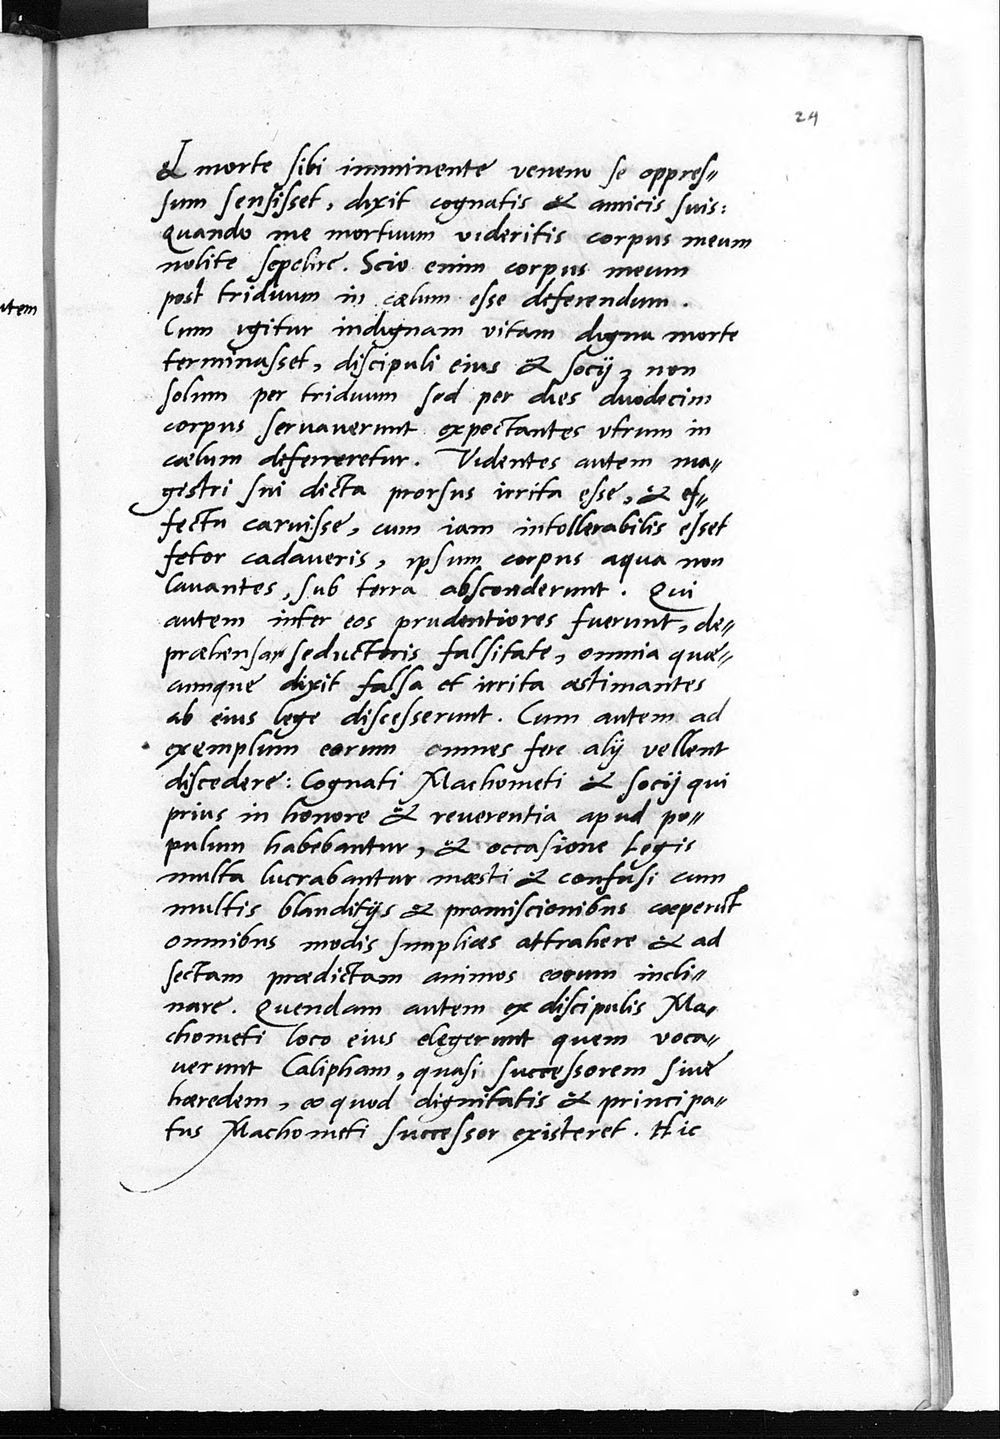 24
& morte sibi imminente veneno se oppres=
sum sensisset, dixit cognatis & amicis suis:
Quando me mortuum videritis corpus meum
nolite sepelire. Scio enim corpus meum
post triduum in cælum esse deferendum.
utem
Cum igitur indignam vitam digna morte
terminasset, discipuli eius & socij, non
solum per triduum sed per dies duodecim
corpus servaverunt expectantes utrum in
cælum deferreretur. Videntes autem ma=
gistri sui dicta prorsus irrita esse, & ef=
fectu caruisse, cum iam intollerabilis esset
fetor cadaveris, ipsum corpus aqua non
lavantes, sub terra absconderunt. Qui
autem inter eos prudentiores fuerunt, de=
præhensa seductoris falsitate, omnia quæ=
cumque dixit falsa et irrita æstimantes
ab eius lege discesserunt. Cum autem ad
exemplum eorum omnes fere alij vellent
discedere: Cognati Machometi & socij qui
prius in honore & reuerentia apud po=
pulum habebantur, & occasione Legis
multa lucrabantur mæsti & confusi cum
multis blanditijs & promiscionibus cæperūt
omnibus modis simplices attrahere & ad
sectam prædictam animos eorum incli=
nare. Quendam autem ex discipulis Ma=
chometi loco eius elegerunt quem voca=
uerunt Calipham, quasi successorem sive
hæredem, eo quod dignitatis & principa=
tus Machometi successor existeret. Hic